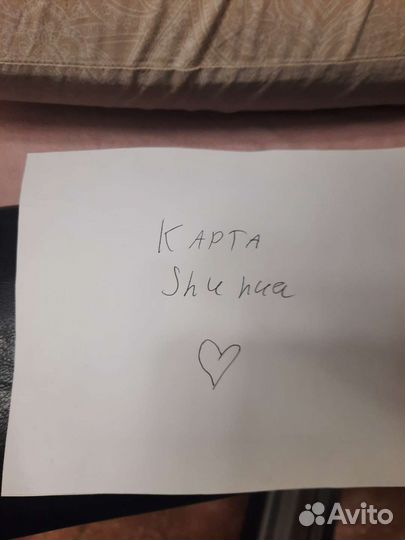 КАРТА
Shuhua
Avito